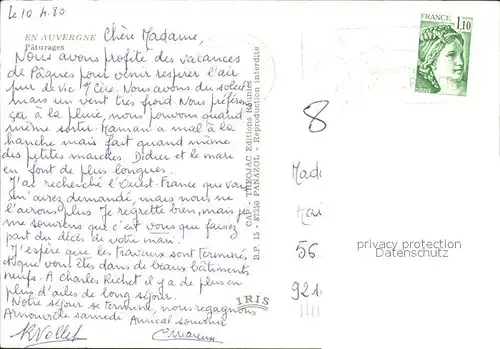 Le 10 4.80
EN AUVERGNE
Pâturages
Chère Madame,
Nous avons profité des vacances
de Pâques pour venir respirer l'air
pur de Vic s/Cère. Nous avons du soleil
mais un vent très froid. Nous préférons
ça à la pluie, nous pouvons quand
même sortir. Maman a mal à la
hanche mais fait quand même
des petites marches. Didier et le mari
en font de plus longues.
J'ai recherché l'Ouest-France que vous
m'aviez demandé, mais nous ne
l'avons plus. Je regrette bien, mais je
me souviens que c'est vous que faisiez
part du décès de votre mari.
J'espère que les travaux sont terminés
et que vous êtes dans de beaux bâtiments
neufs. A Charles Richet il y a de plus en
plus d'ailes de long séjour.
Notre séjour se termine, nous regagnons
samedi. Amical souvenir
CAP - THEOJAC Editions Réunies
B.P. 15 - 87350 PANAZOL - Reproduction Interdite
IRIS
FRANCE
1,10
POSTES
8
Mada
56
921
privacy protection
Datenschutz